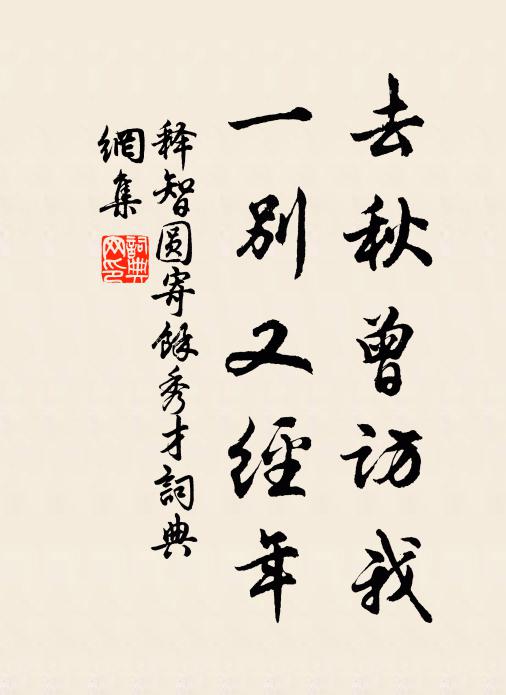 去秋曾访我
一别又經年
释智圆寄餘秀才詞典
網集
詞典
网印